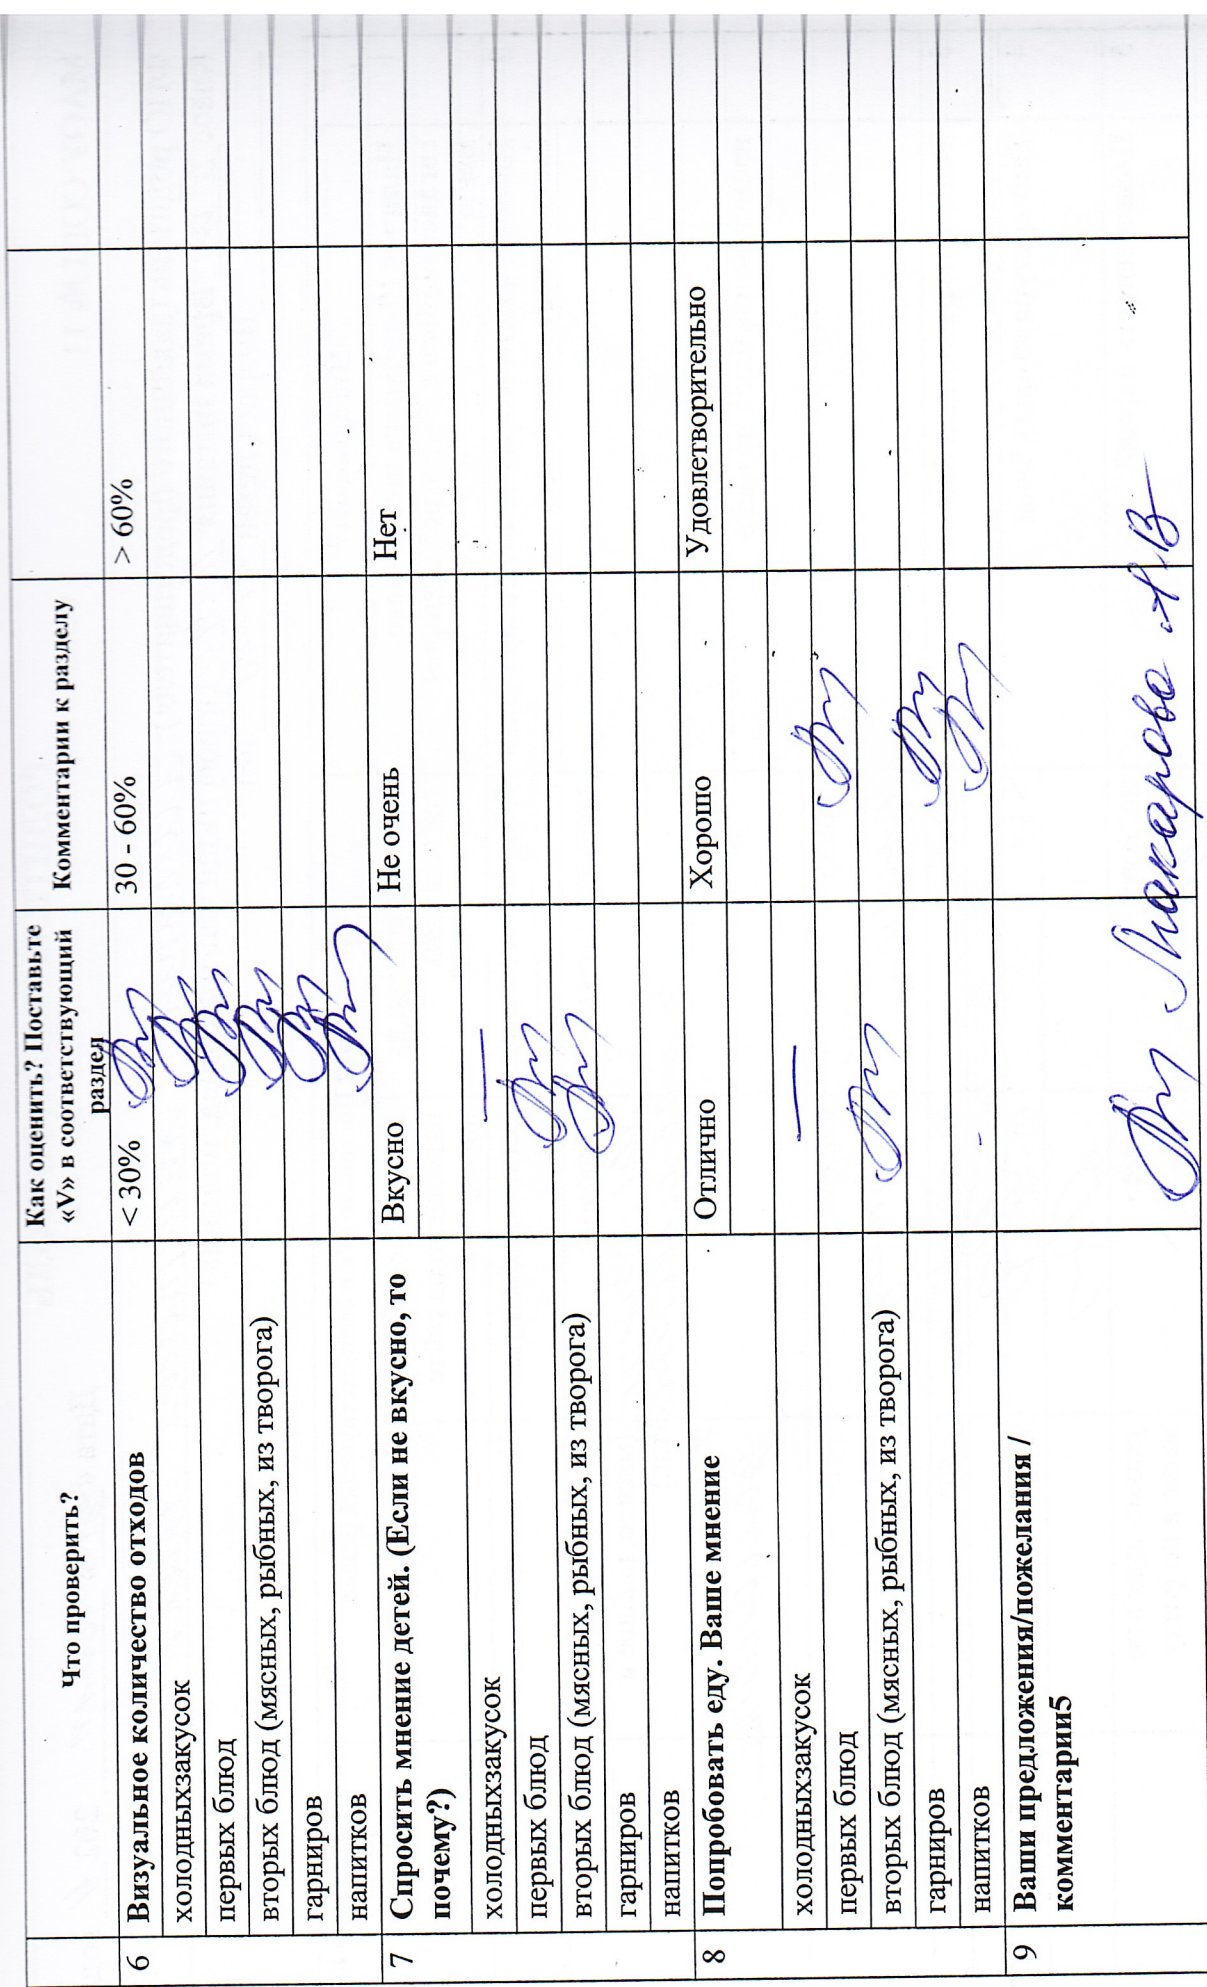 Что проверить?
Как оценить? Поставьте
«V» в соответствующий
раздел
Комментарии к разделу
6
Визуальное количество отходов
< 30%
30 - 60%
> 60%
холодныхзакусок
первых блюд
вторых блюд (мясных, рыбных, из творога)
гарниров
напитков
7
Спросить мнение детей. (Если не вкусно, то
почему?)
Вкусно
Не очень
Нет
холодныхзакусок —
первых блюд
вторых блюд (мясных, рыбных, из творога)
гарниров
напитков
8
Попробовать еду. Ваше мнение
Отлично
Хорошо
Удовлетворительно
холодныхзакусок —
первых блюд
вторых блюд (мясных, рыбных, из творога)
гарниров
напитков -
9
Ваши предложения/пожелания /
комментарии5
Макарова А В